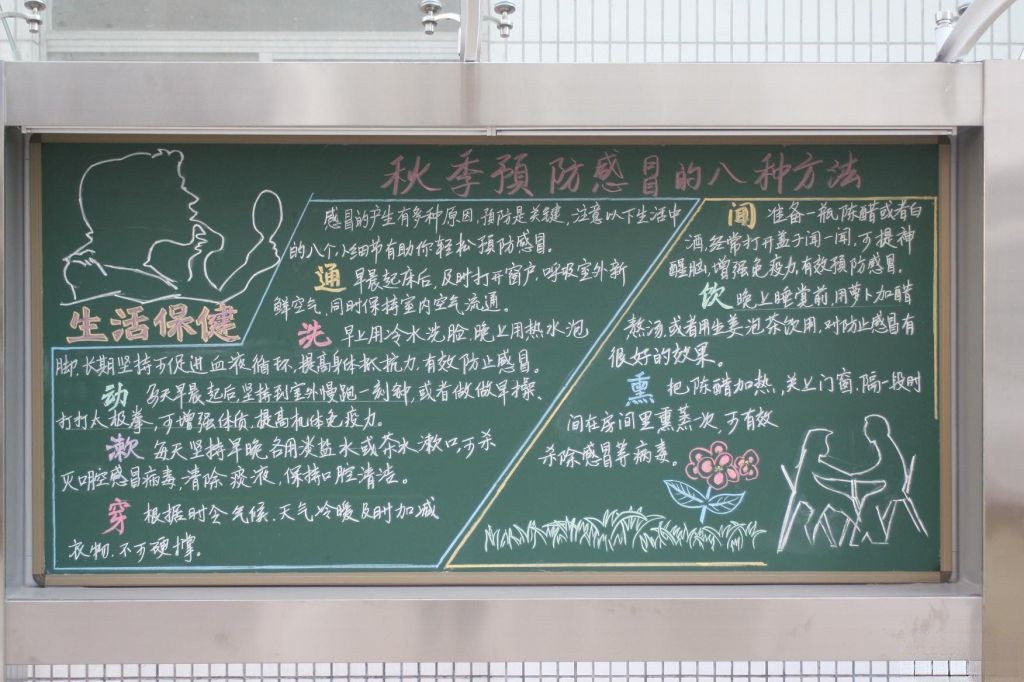 秋季預防感冒的八种方法
生活保健
感冒的产生有多种原因,预防是关键,注意以下生活中
的八个小细节有助你轻松预防感冒。
通 早晨起床后,及时打开窗户,呼吸室外新
鲜空气,同时保持室内空气流通。
洗 早上用冷水洗脸,晚上用热水泡
脚,长期坚持可促进血液循环,提高身体抵抗力,有效防止感冒。
动 每天早晨起后坚持到室外慢跑一刻钟,或者做做早操、
打打太极拳,可增强体质,提高机体免疫力。
漱 每天坚持早晚各用淡盐水或茶水漱口,可杀
灭口腔感冒病毒,清除痰液,保持口腔清洁。
穿 根据时令气候、天气冷暖及时加减
衣物,不可硬撑。
闻 准备一瓶陈醋或者白
酒,经常打开盖子闻一闻,可提神
醒脑,增强免疫力,有效预防感冒。
饮 晚上睡觉前,用萝卜加醋
熬汤,或者用生姜泡茶饮用,对防止感冒有
很好的效果。
熏 把陈醋加热,关上门窗,隔一段时
间在房间里熏蒸一次,可有效
杀除感冒等病毒。